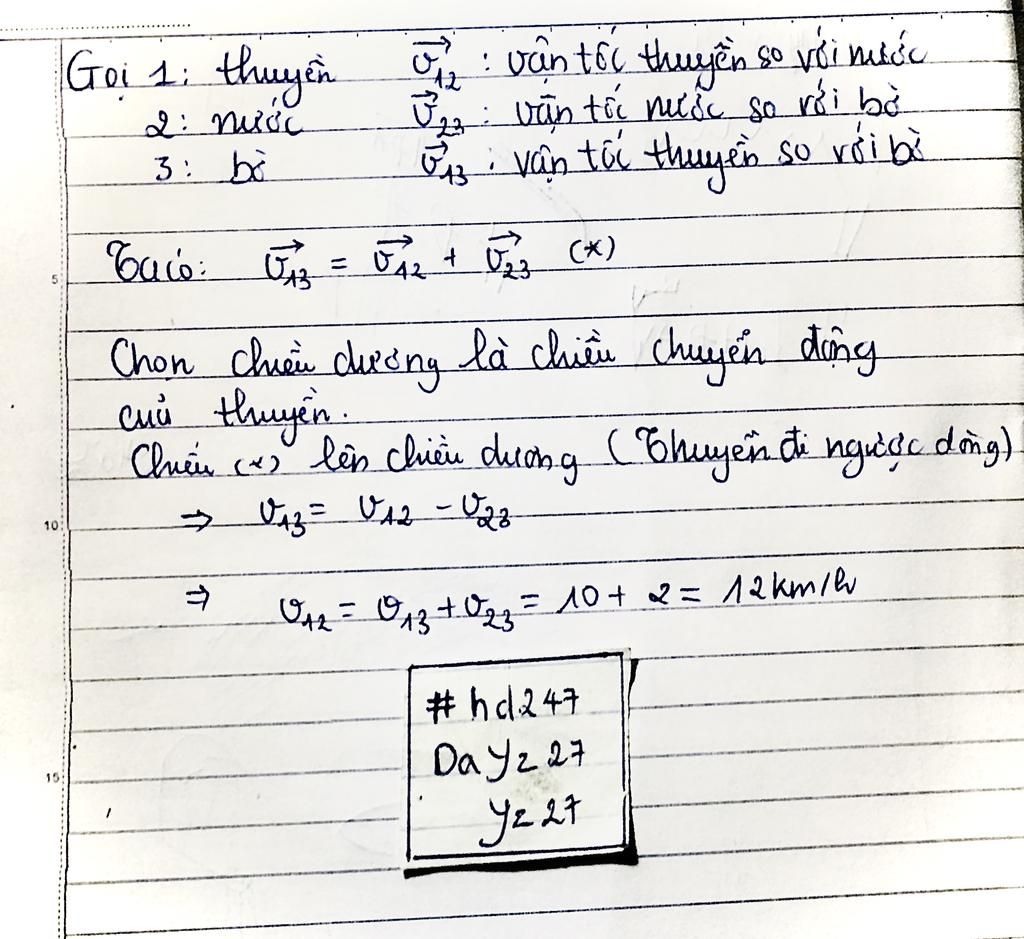 Gọi 1: thuyền v⃗12 : vận tốc thuyền so với nước
2: nước v⃗23 : vận tốc nước so với bờ
3: bờ v⃗13 : vận tốc thuyền so với bờ
5
Ta có: v⃗13 = v⃗12 + v⃗23 (*)
Chọn chiều dương là chiều chuyển động
của thuyền.
Chiếu (*) lên chiều dương (Thuyền đi ngược dòng)
10
⇒ v13 = v12 - v23
⇒ v12 = v13 + v23 = 10 + 2 = 12 km/h
# hd247
DaYz27
15
Yz27